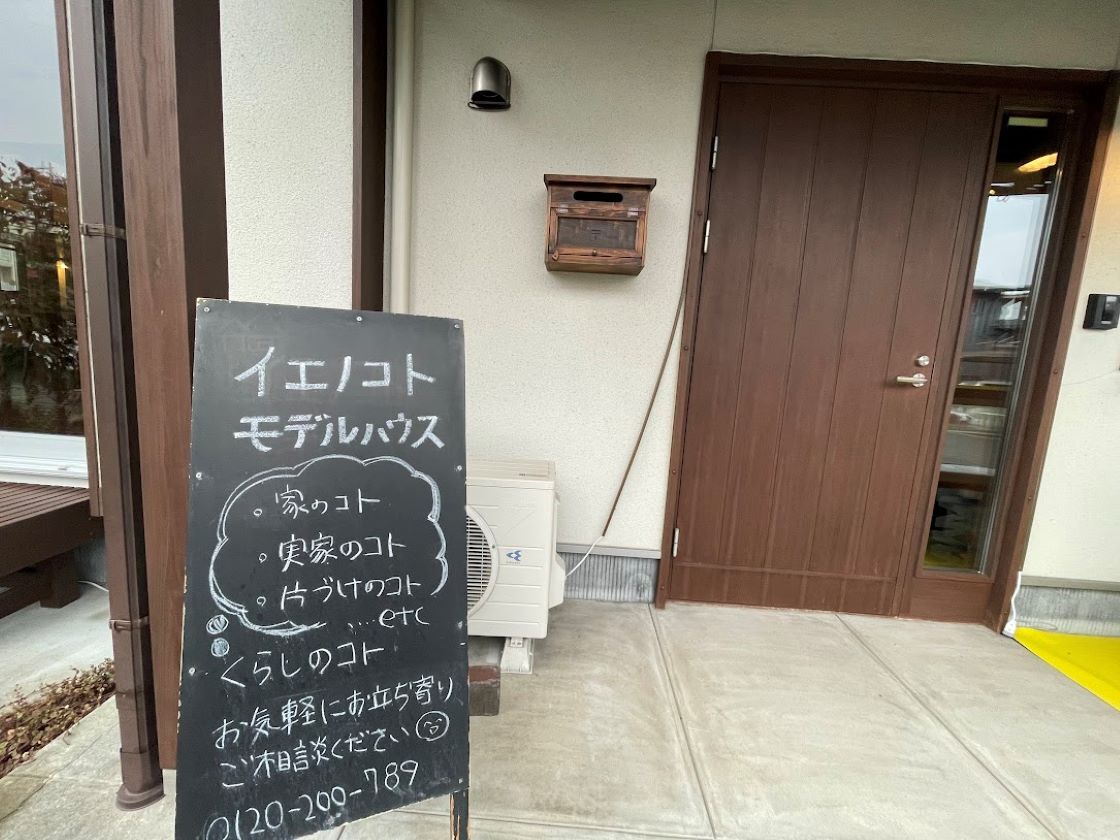 イエノコト
モデルハウス
。家のコト
。実家のコト
。片づけのコト
....etc
くらしのコト
お気軽にお立ち寄り
ご相談ください
0120-200-789